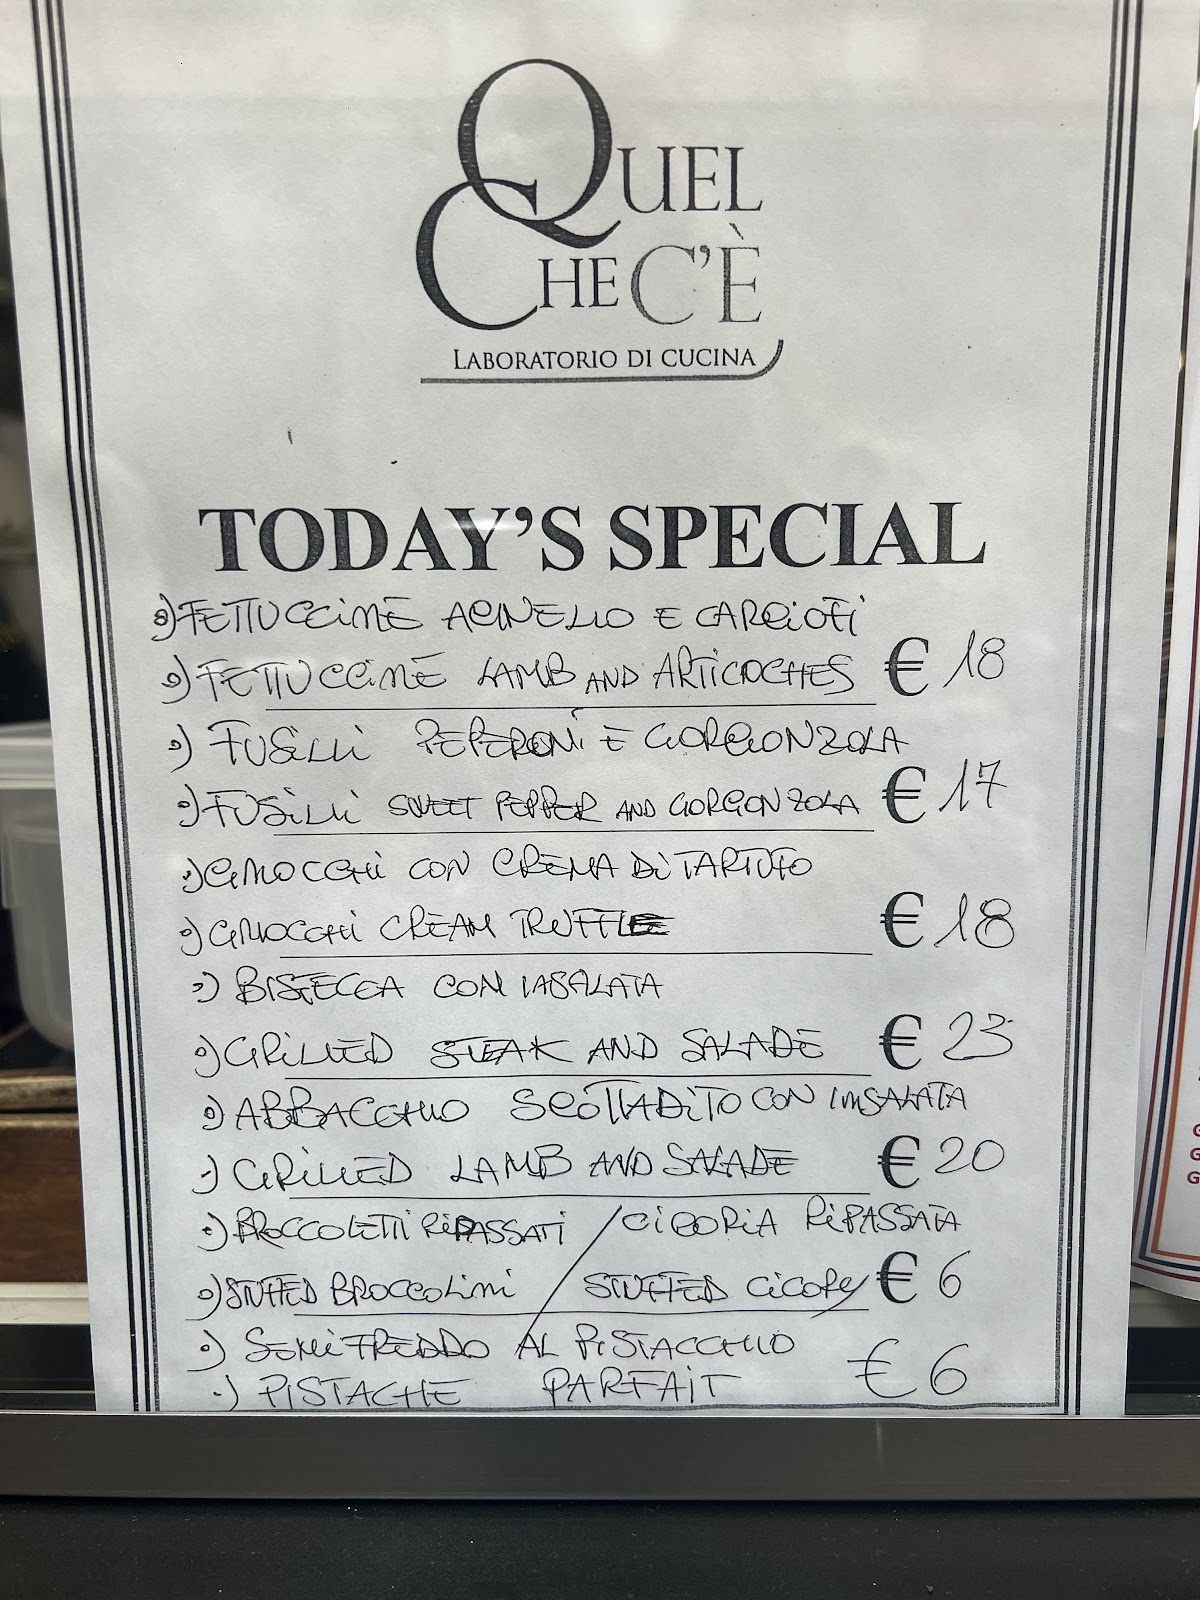 QUEL
CHE C'È
LABORATORIO DI CUCINA
TODAY'S SPECIAL
FETTUCCINE AGNELLO E CARCIOFI
FETTUCCINE LAMB AND ARTICOCHES € 18
FUSILLI PEPERONI E GORGONZOLA
FUSILLI SWEET PEPPER AND GORGONZOLA € 17
GNOCCHI CON CREMA DI TARTUFO
GNOCCHI CREAM TRUFFLE € 18
BISTECCA CON INSALATA
GRILLED STEAK AND SALADE € 23
ABBACCHIO SCOTTADITO CON INSALATA
GRILLED LAMB AND SALADE € 20
BROCCOLETTI RIPASSATI / CICORIA RIPASSATA
STUFFED BROCCOLINI / STUFFED CICORY € 6
SEMIFREDDO AL PISTACCHIO
PISTACHE PARFAIT € 6